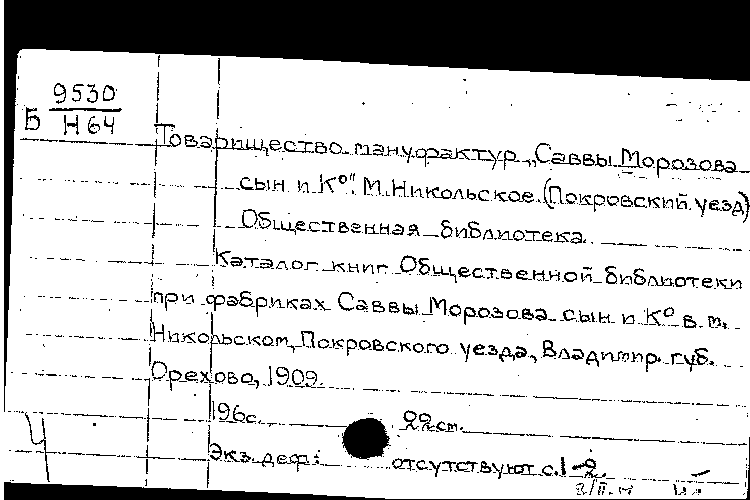 9530
Б Н64
Товарищество мануфактур „Саввы Морозова
сын и К°". М. Никольское. (Покровский уезд)
Общественная библиотека.
Каталог книг Общественной библиотеки
при фабриках Саввы Морозова сын и К° в м.
Никольском, Покровского уезда, Владимир. губ.
Орехово, 1909.
196с. 22см.
Экз. деф: отсутствуют с. 1-2.
Ч